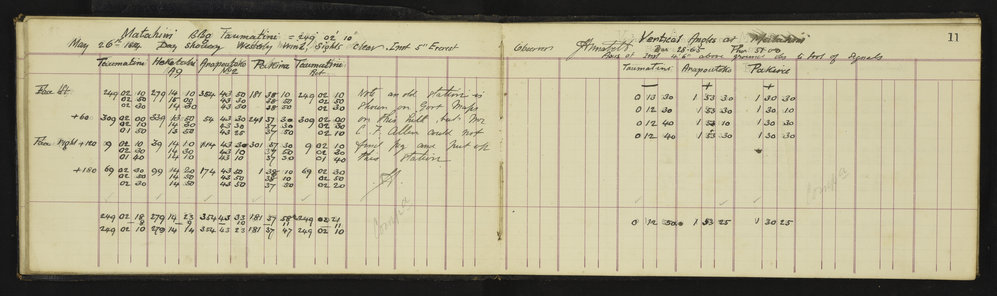 11
Matahiwi Brg Taumatini = 249° 02' 10"
May 26th Day showery Westerly wind, Sights Clear. Inst 5" Everest
Taumatini Haketebe Arapoutoko Pukina Taumatini
A9 No2 Ret.
Face left 249 02 10 279 14 10 354 43 50 181 38 10 249 02 10
02 50 15 00 43 30 38 50 02 50
02 30 14 30 43 50 38 50 02 30
+60 309 02 00 339 13 50 54 43 30 241 57 30 309 02 00
02 10 14 30 43 30 37 30 02 30
01 50 13 50 43 25 37 50 02 10
Face Right +120 9 02 10 39 14 10 114 43 30 301 57 30 9 02 10
02 30 14 30 43 10 37 50 02 30
01 40 14 10 43 10 37 30 01 40
+180 69 02 30 99 14 20 174 43 50 1 38 10 69 02 30
02 30 14 50 43 50 38 10 02 50
02 30 14 50 43 50 37 50 02 20
249 02 18 279 14 23 354 43 33 181 37 58 249 02 21
249 02 10 279 14 14 354 43 23 181 37 47 249 02 10
Note an old station is
shown on Govt Maps
on this hill but Mr
C. F. Allen could not
find peg and put up
this station
Observer Vertical Angles at Matahiwi
Bar 28.65 Ther 51.00
Axis of Inst 4.6 above ground do to foot of Signals
Taumatini Arapoutoko Pukina
− + +
0 13 30 1 53 30 1 30 30
0 12 30 1 53 30 1 30 10
0 12 40 1 53 10 1 30 30
0 12 40 1 53 30 1 30 30
0 12 50 1 53 25 1 30 25